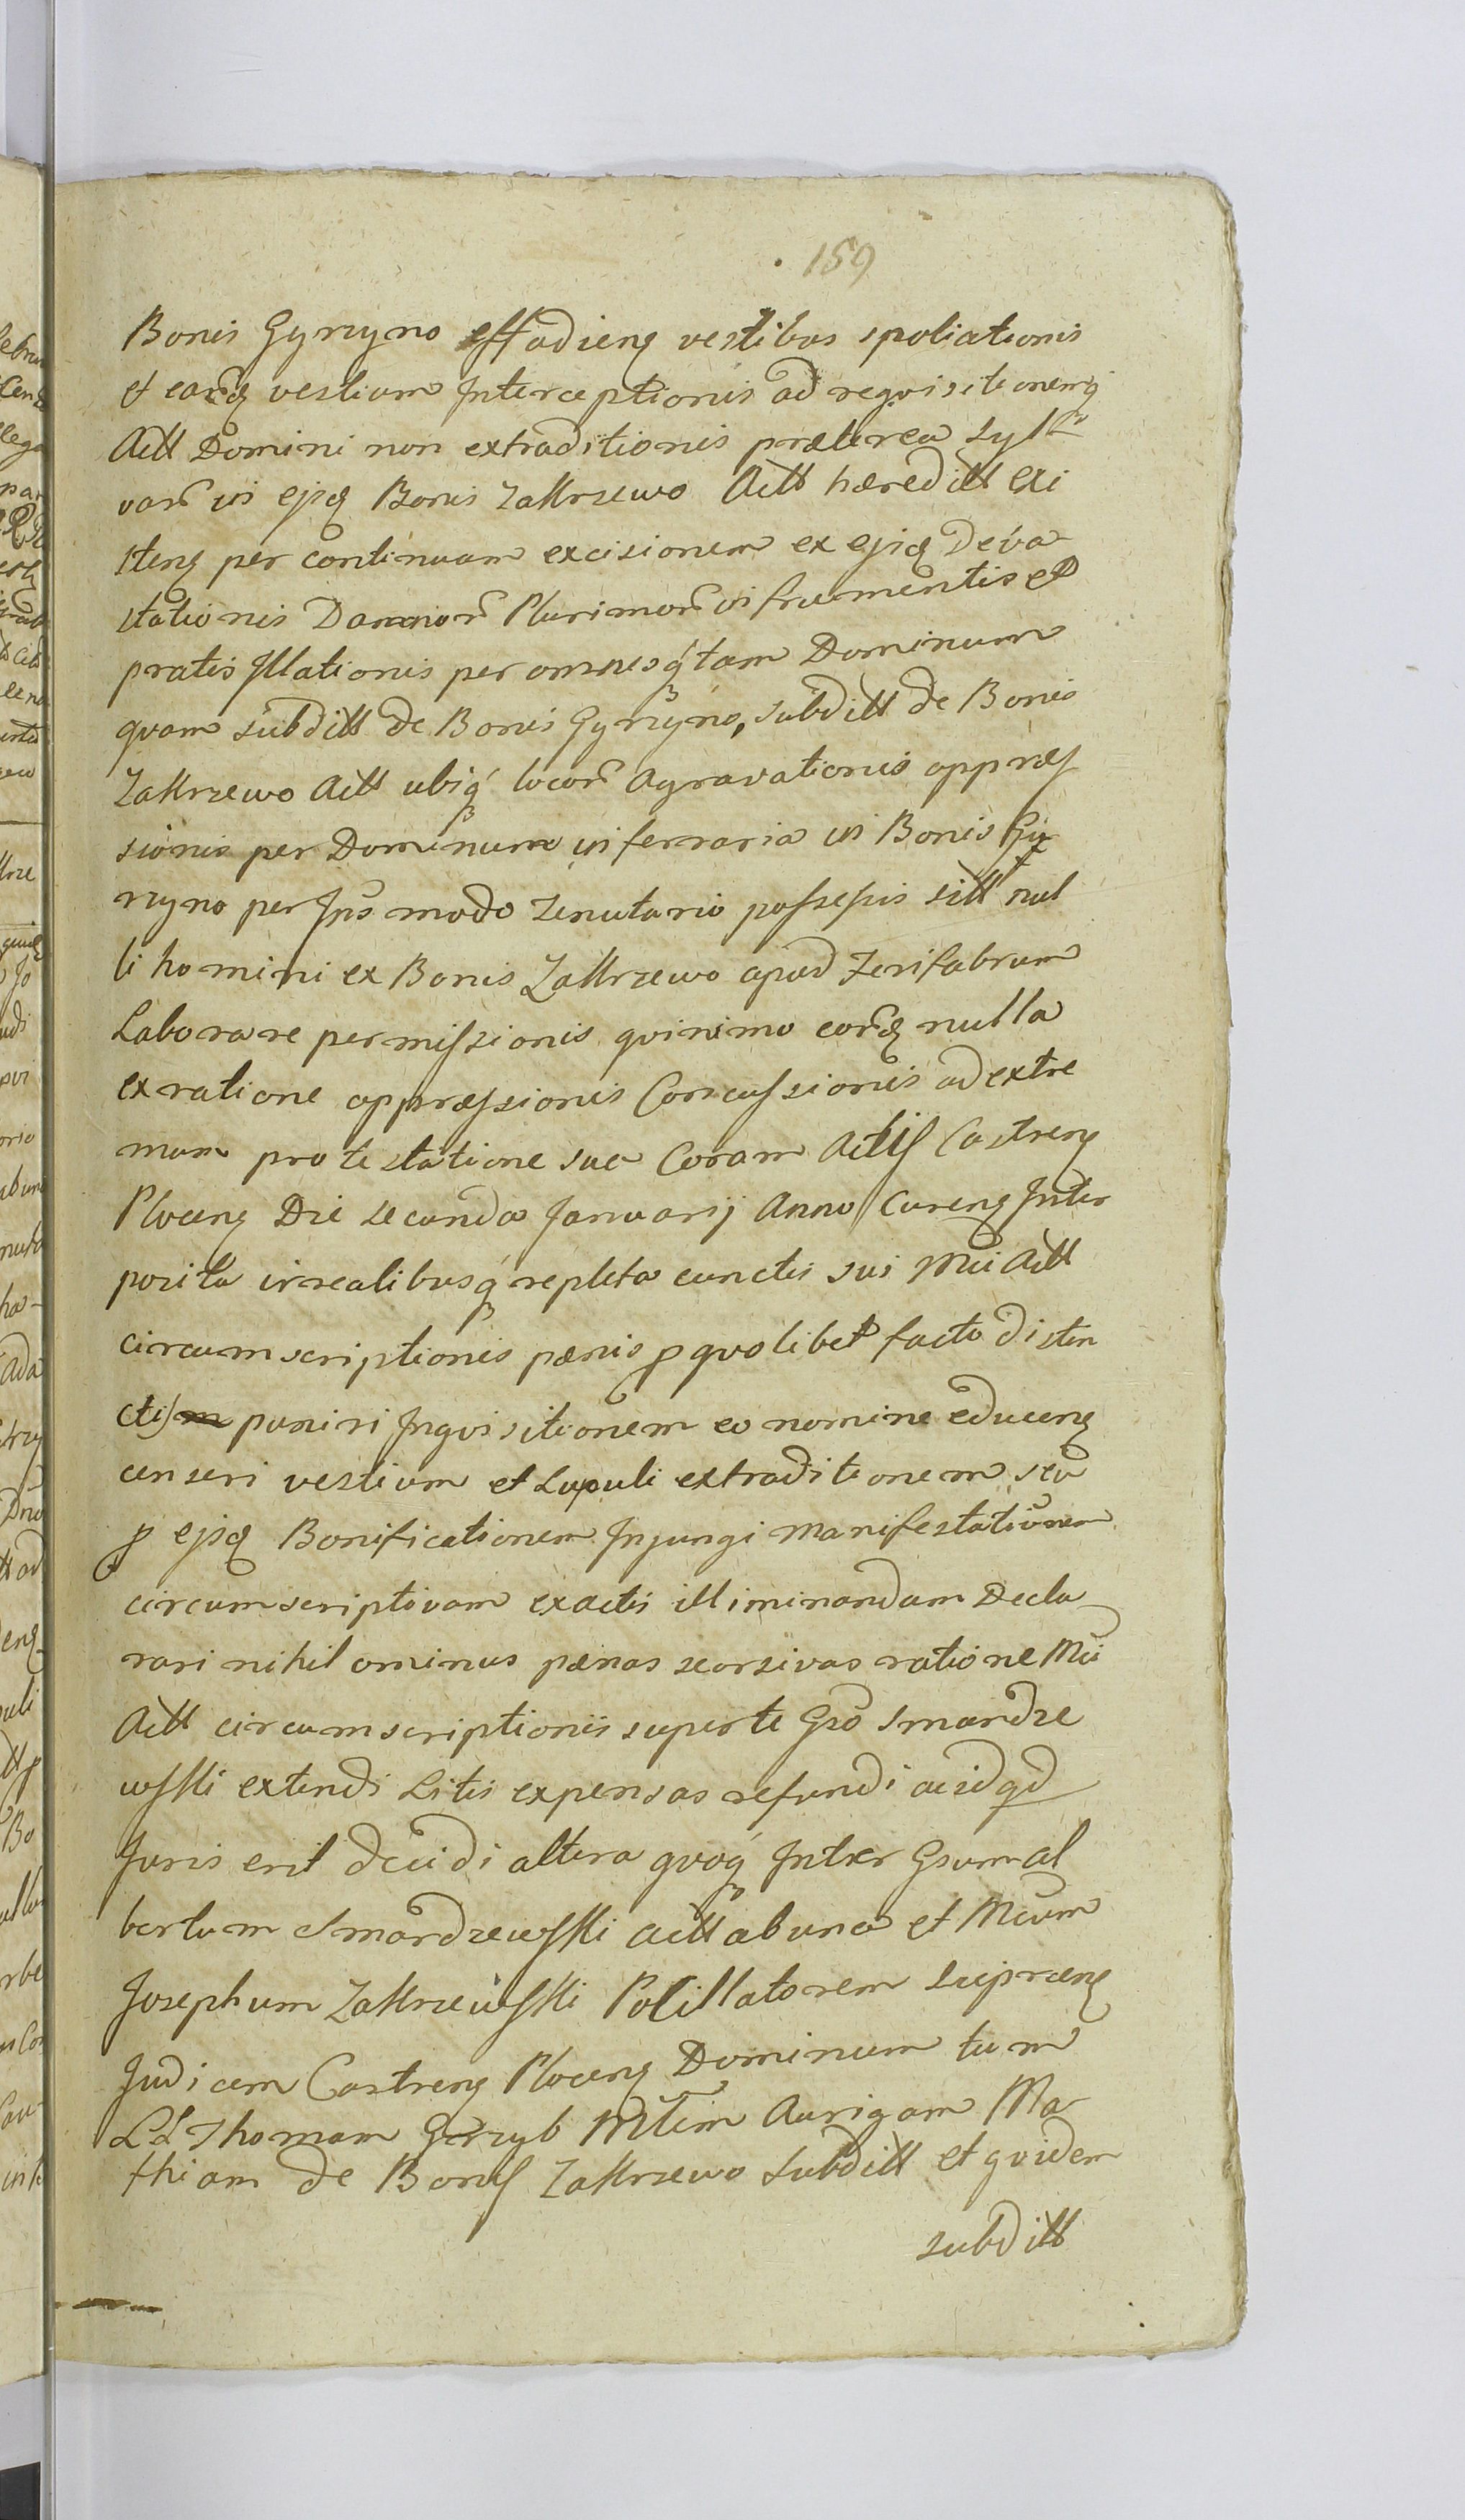 159
Bonis Gyrzyno effadieng vestibus spoliationis
et earūq vestium Interceptionis ad requisitionemq
Actt Domini non extraditionis præterea Syl
varū in ejsq Bonis Zakrzewo Actt hæreditt exi
steng per continuam excisionem ex ejsq Deva
stationis Damnorū Plurimorū in frumentis et
pratis Illationis per omnesq tam Dominum
quam subditt de Bonis Gyrzyno, subditt de Bonis
Zakrzewo Actt ubiq locorū Agravationis oppræs
sionis per Dominum in ferraria in Bonis Gy
rzyno per Ipˢ modo Tenutario possessis sitt nul
li homini ex Bonis Zakrzewo apud Ferifabrum
Laborare permissionis quinimo eorūq nulla
ex ratione oppræssionis Concussionis ad extre
mum protestatione sua Coram Actis Castreng
Ploceng Die secunda Januarij Anno Cureng Inter
posita irrealibusq repleta cunctis sui Mci Actt
circumscriptionis pænis p quolibet facto distin
ctis puniri Inquisitionem eo nomine educeng
censeri vestium et Lupuli extraditionem seu
p ejsq Bonificationem Injungi Manifestationem
circumscriptivam exactis illiminandam Decla
rari nihil ominus pænas seorsivas ratione Mci
Actt circumscriptionis super te Gso Smardze
wski extendi Litis expensas refundi ac id qd
Juris erit decidi altera quoq Inter Gsum Al
bertum Smardzewski Actt ab una et Mcum
Josephum Zakrzewski Pocillatorem supræng
Judicem Castreng Ploceng Dominum tum
LL Thomam Aurigam Ma
thiam de Bonis Zakrzewo subditt et quidem
subditt